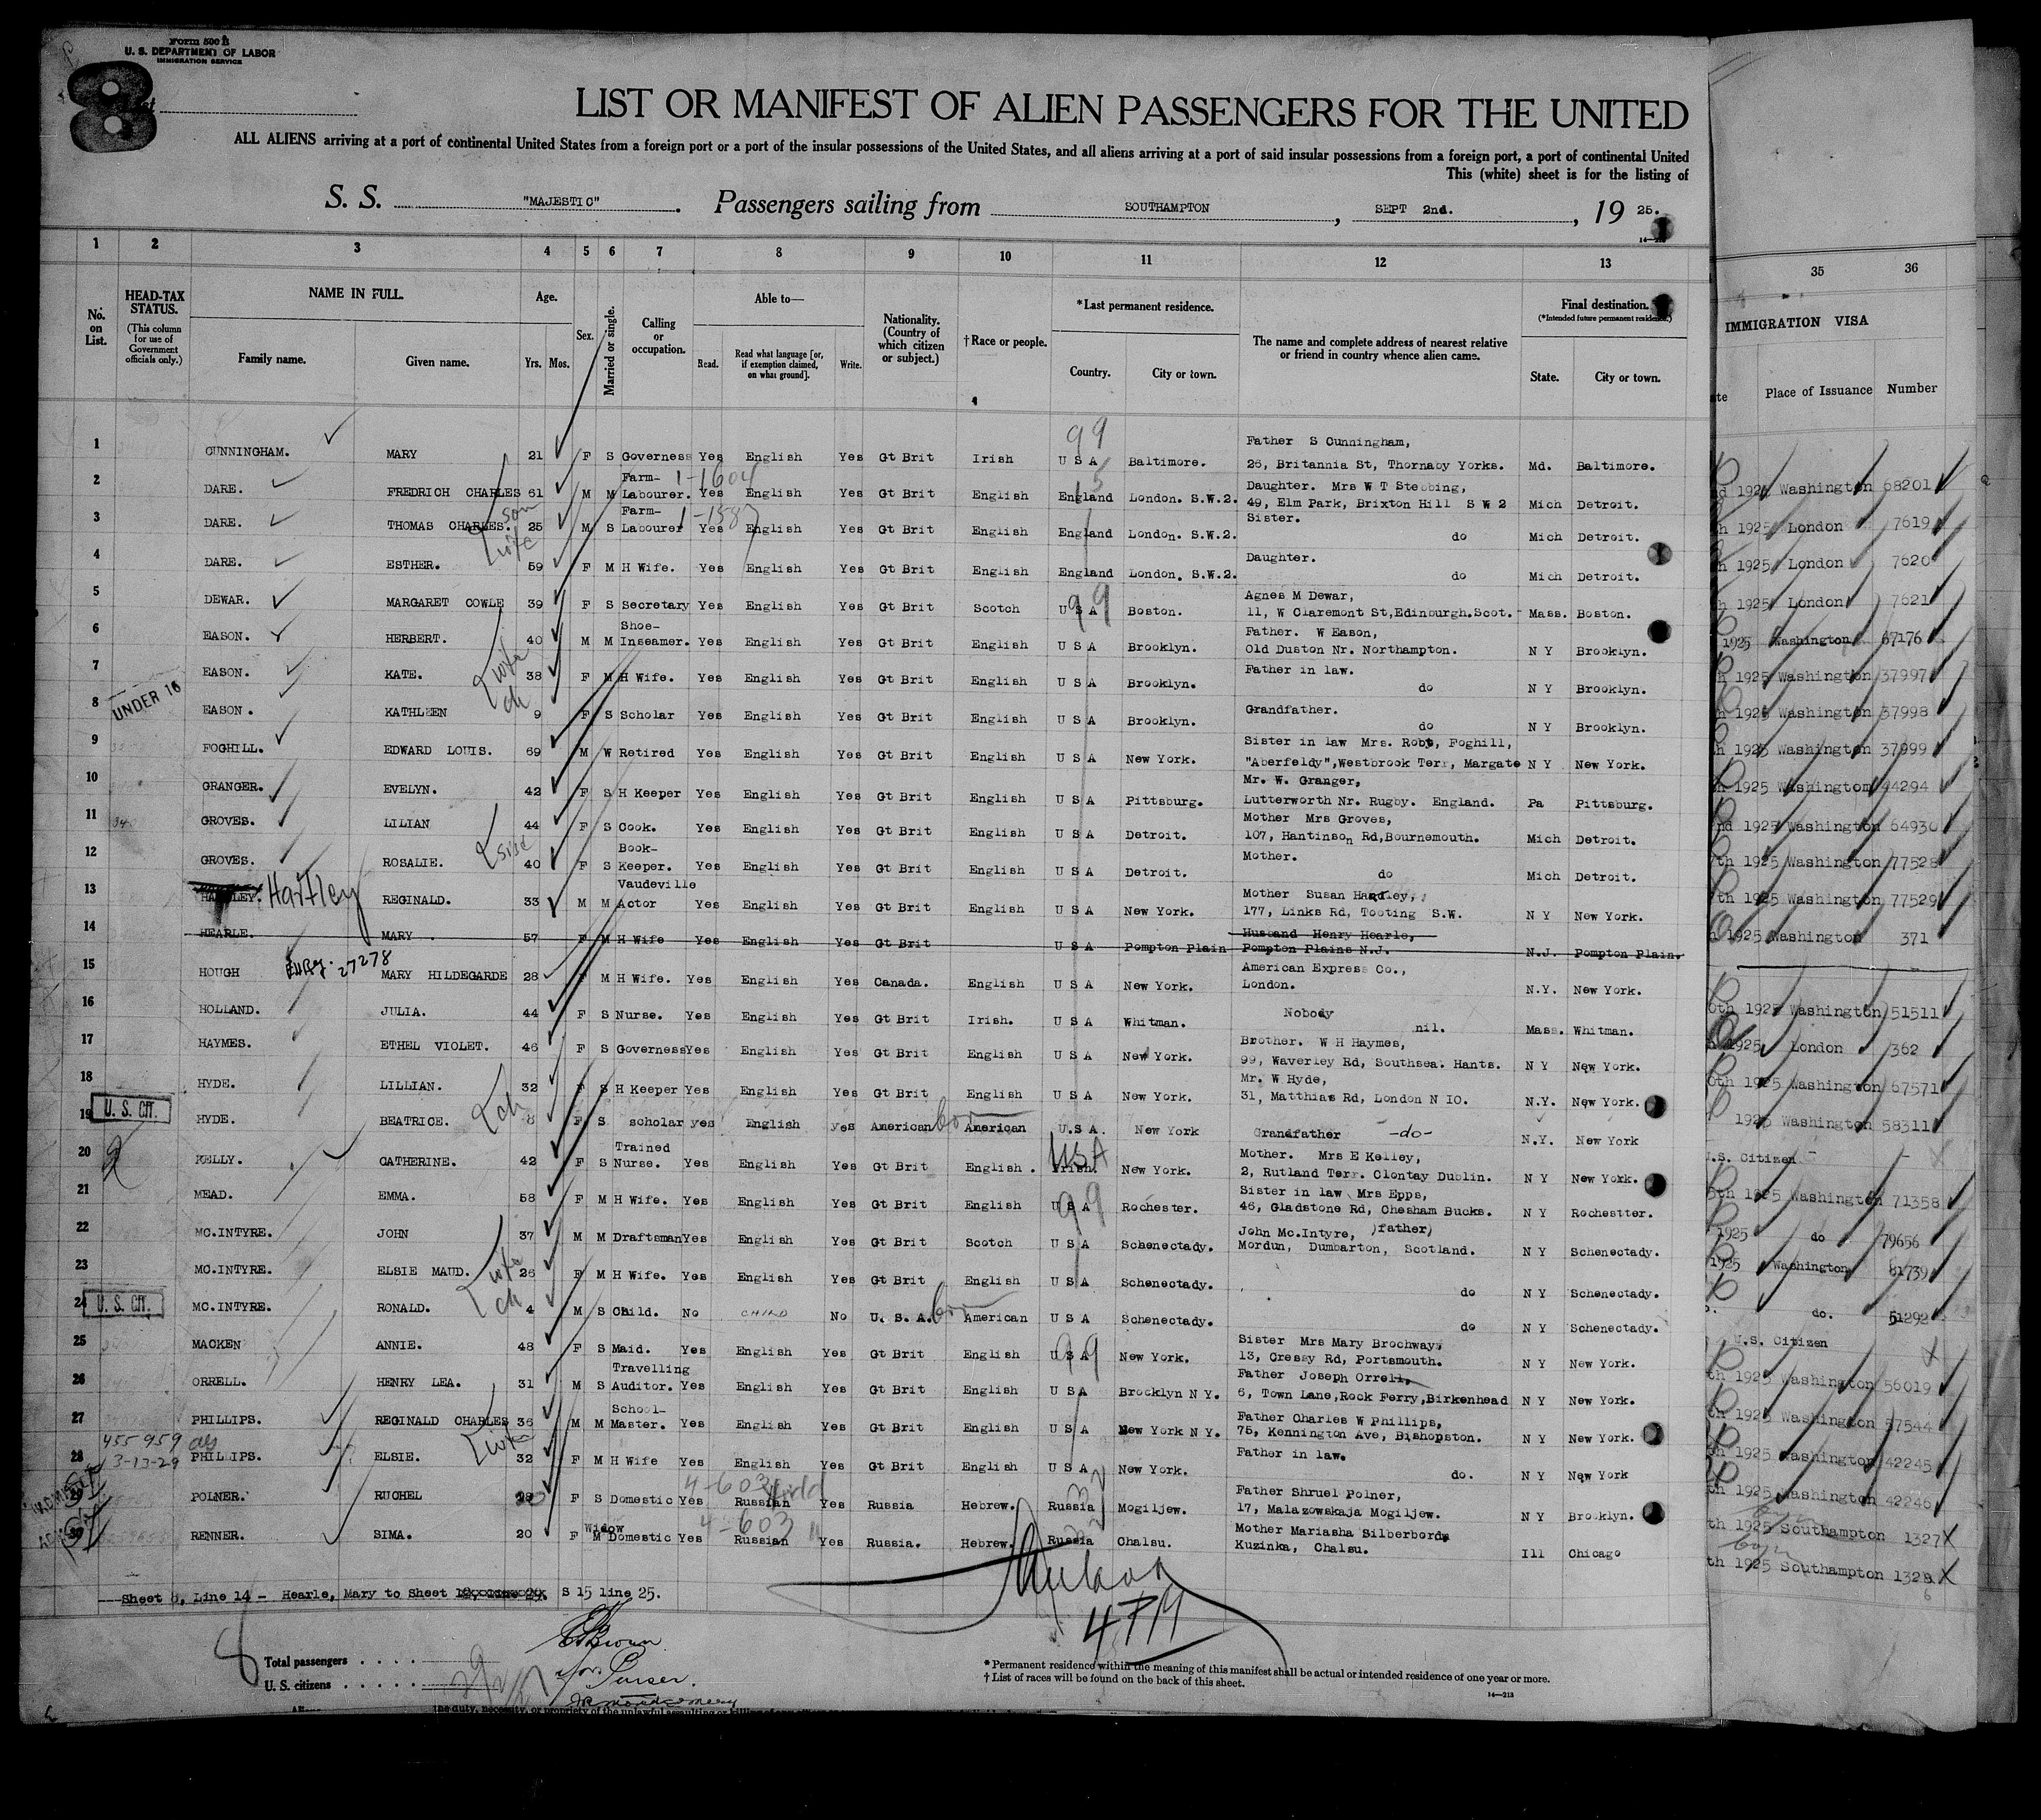 Form 500 B
U. S. DEPARTMENT OF LABOR
IMMIGRATION SERVICE
8
LIST OR MANIFEST OF ALIEN PASSENGERS FOR THE UNITED
ALL ALIENS arriving at a port of continental United States from a foreign port or a port of the insular possessions of the United States, and all aliens arriving at a port of said insular possessions from a foreign port, a port of continental United
This (white) sheet is for the listing of
S. S. "MAJESTIC". Passengers sailing from SOUTHAMPTON, SEPT 2nd., 19 25.
1 2 3 4 5 6 7 8 9 10 11 12 13 35 36
No. on List. HEAD-TAX STATUS. (This column for use of Government officials only.) NAME IN FULL. Family name. Given name. Age. Yrs. Mos. Sex. Married or single. Calling or occupation. Able to— Read. Read what language [or, if exemption claimed, on what ground]. Write. Nationality. (Country of which citizen or subject.) †Race or people. *Last permanent residence. Country. City or town. The name and complete address of nearest relative or friend in country whence alien came. Final destination. (*Intended future permanent residence.) State. City or town. IMMIGRATION VISA Place of Issuance Number
1 CUNNINGHAM. MARY 21 F S Governess Yes English Yes Gt Brit Irish U S A Baltimore. Father S Cunningham, 26, Britannia St, Thornaby Yorks. Md. Baltimore. Washington 68201
2 DARE. FREDRICH CHARLES 61 M M Farm-Labourer. 1-1604 Yes English Yes Gt Brit English England London. S.W.2. Daughter. Mrs W T Stebbing, 49, Elm Park, Brixton Hill S W 2 Mich Detroit. 1925 London 7619
3 DARE. THOMAS CHARLES. son 25 M S Farm-Labourer 1-1587 Yes English Yes Gt Brit English England London. S.W.2. Sister. do Mich Detroit. 1925 London 7620
4 DARE. ESTHER. wife 59 F M H Wife. Yes English Yes Gt Brit English England London. S.W.2. Daughter. do Mich Detroit. 1925 London 7621
5 DEWAR. MARGARET COWLE 39 F S Secretary Yes English Yes Gt Brit Scotch U S A Boston. Agnes M Dewar, 11, W Claremont St,Edinburgh.Scot. Mass. Boston. 1925 Washington 67176
6 EASON. HERBERT. 40 M M Shoe-Inseamer. Yes English Yes Gt Brit English U S A Brooklyn. Father. W Eason, Old Duston Nr. Northampton. N Y Brooklyn. 1925 Washington 37997
7 EASON. KATE. wife 38 F M H Wife. Yes English Yes Gt Brit English U S A Brooklyn. Father in law. do N Y Brooklyn. 1925 Washington 37998
UNDER 16
8 EASON. KATHLEEN ch 9 F S Scholar Yes English Yes Gt Brit English U S A Brooklyn. Grandfather. do N Y Brooklyn. 1925 Washington 37999
9 FOGHILL. EDWARD LOUIS. 69 M W Retired Yes English Yes Gt Brit English U S A New York. Sister in law Mrs. Robt, Foghill, "Aberfeldy",Westbrook Terr, Margate N Y New York. 1925 Washington 44294
10 GRANGER. EVELYN. 42 F S H Keeper Yes English Yes Gt Brit English U S A Pittsburg. Mr. W. Granger, Lutterworth Nr. Rugby. England. Pa Pittsburg. 1925 Washington 64930
11 GROVES. LILIAN 44 F S Cook. Yes English Yes Gt Brit English U S A Detroit. Mother Mrs Groves, 107, Hantinson Rd,Bournemouth. Mich Detroit. 1925 Washington 77528
12 GROVES. ROSALIE. 40 F S Book-Keeper. Yes English Yes Gt Brit English U S A Detroit. Mother. do Mich Detroit. 1925 Washington 77529
13 Hartley REGINALD. 33 M M Vaudeville Actor Yes English Yes Gt Brit English U S A New York. Mother Susan Hartley, 177, Links Rd, Tooting S.W. N Y New York. 1925 Washington 371
14 HEARLE. MARY. 57 F M H Wife Yes English Yes Gt Brit U S A Pompton Plain Husband Henry Hearle, Pompton Plains N.J. N.J. Pompton Plain.
15 HOUGH 27278 MARY HILDEGARDE 28 F M H Wife. Yes English Yes Canada. English U S A New York. American Express Co., London. N.Y. New York. 1925 Washington 51511
16 HOLLAND. JULIA. 44 F S Nurse. Yes English Yes Gt Brit Irish. U S A Whitman. Nobody nil. Mass. Whitman. 1925 London 362
17 HAYMES. ETHEL VIOLET. 46 F S Governess Yes English Yes Gt Brit English U S A New York. Brother. W H Haymes, 99, Waverley Rd, Southsea. Hants. N Y New York. 1925 Washington 67571
18 HYDE. LILLIAN. 32 F S H Keeper Yes English Yes Gt Brit English U S A New York. Mr. W Hyde, 31, Matthias Rd, London N IO. N.Y. New York. 1925 Washington 58311
U. S. CIT.
19 HYDE. BEATRICE. ch 8 F S scholar yes English yes American American U.S.A. New York Grandfather -do- N.Y. New York U.S. Citizen
20 KELLY. CATHERINE. 42 F S Trained Nurse. Yes English Yes Gt Brit English. USA New York. Mother. Mrs E Kelley, 2, Rutland Terr. Clontay Dublin. N Y New York. 1925 Washington 71358
21 MEAD. EMMA. 58 F M H Wife. Yes English Yes Gt Brit English U S A Rochester. Sister in law Mrs Epps, 46, Gladstone Rd, Chesham Bucks. N Y Rochestter. 1925 do 79656
22 MC.INTYRE. JOHN 37 M M Draftsman Yes English Yes Gt Brit Scotch U S A Schenectady. John Mc.Intyre, )father) Mordun, Dumbarton, Scotland. N Y Schenectady. 1925 Washington 81739
23 MC.INTYRE. ELSIE MAUD. wife 26 F M H Wife. Yes English Yes Gt Brit English U S A Schenectady. do N Y Schenectady. do. 51292
U. S. CIT.
24 MC.INTYRE. RONALD. ch 4 M S Child. No CHILD No U. S. A. American U S A Schenectady. do N Y Schenectady. U.S. Citizen
25 MACKEN ANNIE. 48 F S Maid. Yes English Yes Gt Brit English U S A New York. Sister Mrs Mary Brochway, 13, Cressy Rd, Portsmouth. N Y New York. 1925 Washington 56019
26 ORRELL. HENRY LEA. 31 M S Travelling Auditor. Yes English Yes Gt Brit English U S A Brooklyn N Y. Father Joseph Orrell, 6, Town Lane,Rock Ferry,Birkenhead N Y New York. 1925 Washington 57544
27 PHILLIPS. REGINALD CHARLES 36 M M School-Master. Yes English Yes Gt Brit English U S A New York N Y. Father Charles W Phillips, 75, Kennington Ave, Bishopston. N Y New York. 1925 Washington 42245
455959
3-13-29
28 PHILLIPS. ELSIE. wife 32 F M H Wife Yes English Yes Gt Brit English U S A New York. Father in law. do. N Y New York 1925 Washington 42246
29 POLNER. RUCHEL F S Domestic 4-603 Yes Russian Yes Russia Hebrew. Russia Mogiljew. Father Shruel Polner, 17, Malazowskaja Mogiljew. N Y Brooklyn. 1925 Southampton 1327
30 RENNER. SIMA. 20 F M Widow Domestic 4-603 Yes Russian Yes Russia. Hebrew. Russia Chalsu. Mother Mariasha Silberbords Kuzinka, Chalsu. Ill Chicago 1925 Southampton 1328
Sheet 8, Line 14 - Hearle, Mary to Sheet S 15 line 25.
8
Total passengers . . . .
U. S. citizens . . . . .
Purser.
* Permanent residence within the meaning of this manifest shall be actual or intended residence of one year or more.
† List of races will be found on the back of this sheet.
14—213